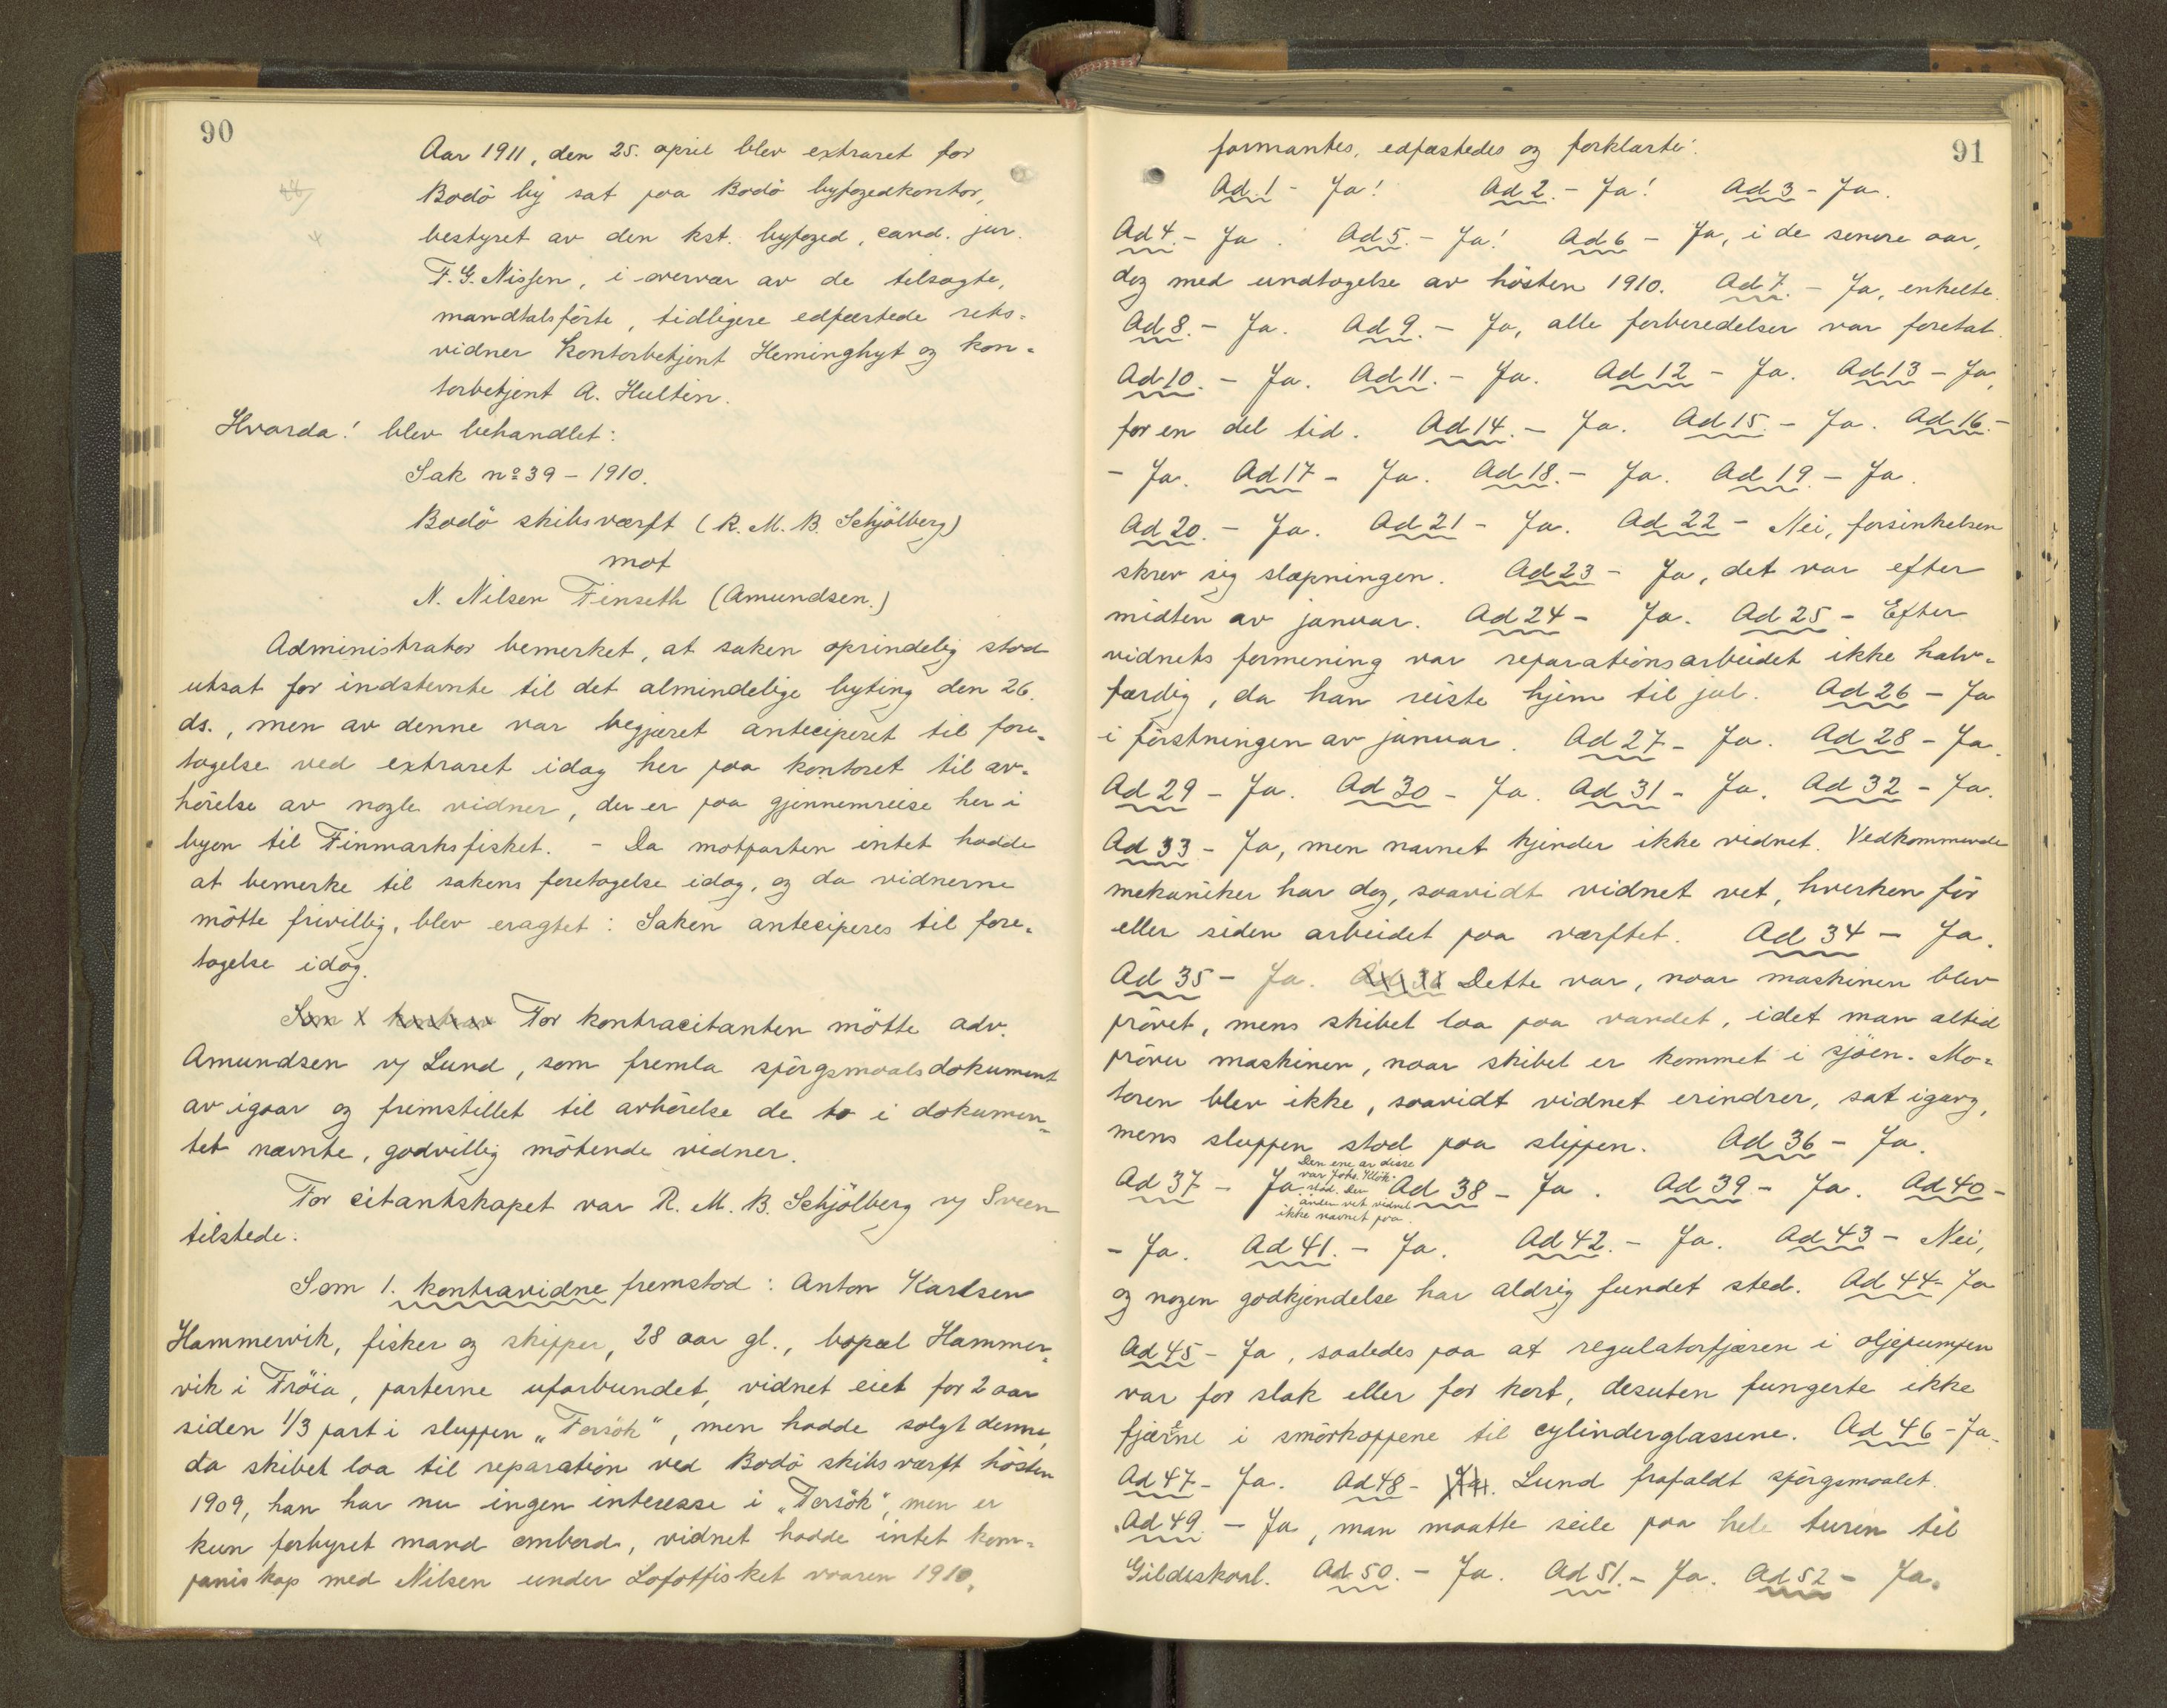 90
Aar 1911, den 25. april blev extraret for
Bodö by sat paa Bodö byfogedkontor,
bestyret av den kst. byfoged, cand. jur.
F. G. Nissen, i overvær av de tilsagte,
mandtalsförte, tidligere edfæstede rets-
vidner kontorbetjent Heminghyt og kon-
torbetjent A. Hultin.
Hvorda! blev behandlet:
Sak no 39 - 1910.
Bodö skibsværft (R. M. B. Schjölberg)
mot
N. Nilsen Finseth (Amundsen.)
Administrator bemerket, at saken oprindelig stod
utsat for indstevnte til det almindelige byting den 26.
ds., men av denne var begjæret anteciperet til fore-
tagelse ved extraret idag her paa kontoret til av-
hörelse av nogle vidner, der er paa gjennemreise her i
byen til Finmarksfisket. - Da motparten intet hadde
at bemerke til sakens foretagelse idag, og da vidnerne
mötte frivillig, blev eragtet: Saken anteciperes til fore-
tagelse idag.
For kontracitanten mötte adv.
Amundsen v/ Lund, som fremla spörgsmaalsdokument
av igaar og fremstillet til avhörelse de to i dokumen-
tet nævnte, godvillig mötende vidner.
For citantskapet var R. M. B. Schjölberg v/ Sveen
tilstede.
Som 1. kontravidne fremstod: Anton Karlsen
Hammervik, fisker og skipper, 28 aar gl., bopæl Hammer-
vik i Fröia, parterne uforbundet, vidnet eiet for 2 aar
siden 1/3 part i sluppen "Forsök", men hadde solgt denne,
da skibet laa til reparation ved Bodö skibsværft hösten
1909, han har nu ingen interesse i "Forsök", men er
kun forhyret mand ombord, vidnet hadde intet kom-
paniskap med Nilsen under Lofotfisket vaaren 1910,
91
formantes, edfæstedes og forklarte:
Ad 1 - Ja! Ad 2. - Ja! Ad 3 - Ja.
Ad 4. - Ja. Ad 5. - Ja! Ad 6 - Ja, i de senere aar,
dog med undtagelse av hösten 1910. Ad 7. - Ja, enkelte.
Ad 8. - Ja. Ad 9. - Ja, alle forberedelser var foretat.
Ad 10. - Ja. Ad 11. - Ja. Ad 12 - Ja. Ad 13 - Ja,
for en del tid. Ad 14. - Ja. Ad 15. - Ja. Ad 16. -
- Ja. Ad 17 - Ja. Ad 18. - Ja. Ad 19. - Ja.
Ad 20. - Ja. Ad 21 - Ja. Ad 22 - Nei, forsinkelsen
skrev sig slæpningen. Ad 23 - Ja, det var efter
midten av januar. Ad 24 - Ja. Ad 25 - Efter
vidnets formening var reparationsarbeidet ikke halv-
færdig, da han reiste hjem til jul. Ad 26 - Ja
i förstningen av januar. Ad 27 - Ja. Ad 28 - Ja.
Ad 29 - Ja. Ad 30 - Ja. Ad 31 - Ja. Ad 32 - Ja.
Ad 33 - Ja, men navnet kjender ikke vidnet. Vedkommende
mekaniker har dog, saavidt vidnet vet, hverken för
eller siden arbeidet paa værftet. Ad 34 - Ja.
Ad 35 - Ja. Dette var, naar maskinen blev
prövet, mens skibet laa paa vandet, idet man altid
pröver maskinen, naar skibet er kommet i sjöen. Mo-
toren blev ikke, saavidt vidnet erindrer, sat igang,
mens sluppen stod paa slippen. Ad 36 - Ja.
Den ene av disse
var Johs. Klök-
stad. Den
anden vet vidnet
ikke navnet paa.
Ad 37 - Ja. Ad 38 - Ja. Ad 39 - Ja. Ad 40 -
- Ja. Ad 41. - Ja. Ad 42. - Ja. Ad 43 - Nei,
og nogen godkjendelse har aldrig fundet sted. Ad 44 - Ja
Ad 45 - Ja, saaledes paa at regulatorfjæren i oljepumpen
var for slak eller for kort, desuten fungerte ikke
fjærene i smörkoppene til cylinderglassene. Ad 46 - Ja.
Ad 47 - Ja. Ad 48 - Ja. Lund frafaldt spörgsmaalet.
Ad 49. - Ja, man maatte seile paa hele turen til
Gildeskaal. Ad 50. - Ja. Ad 51. - Ja. Ad 52 - Ja.